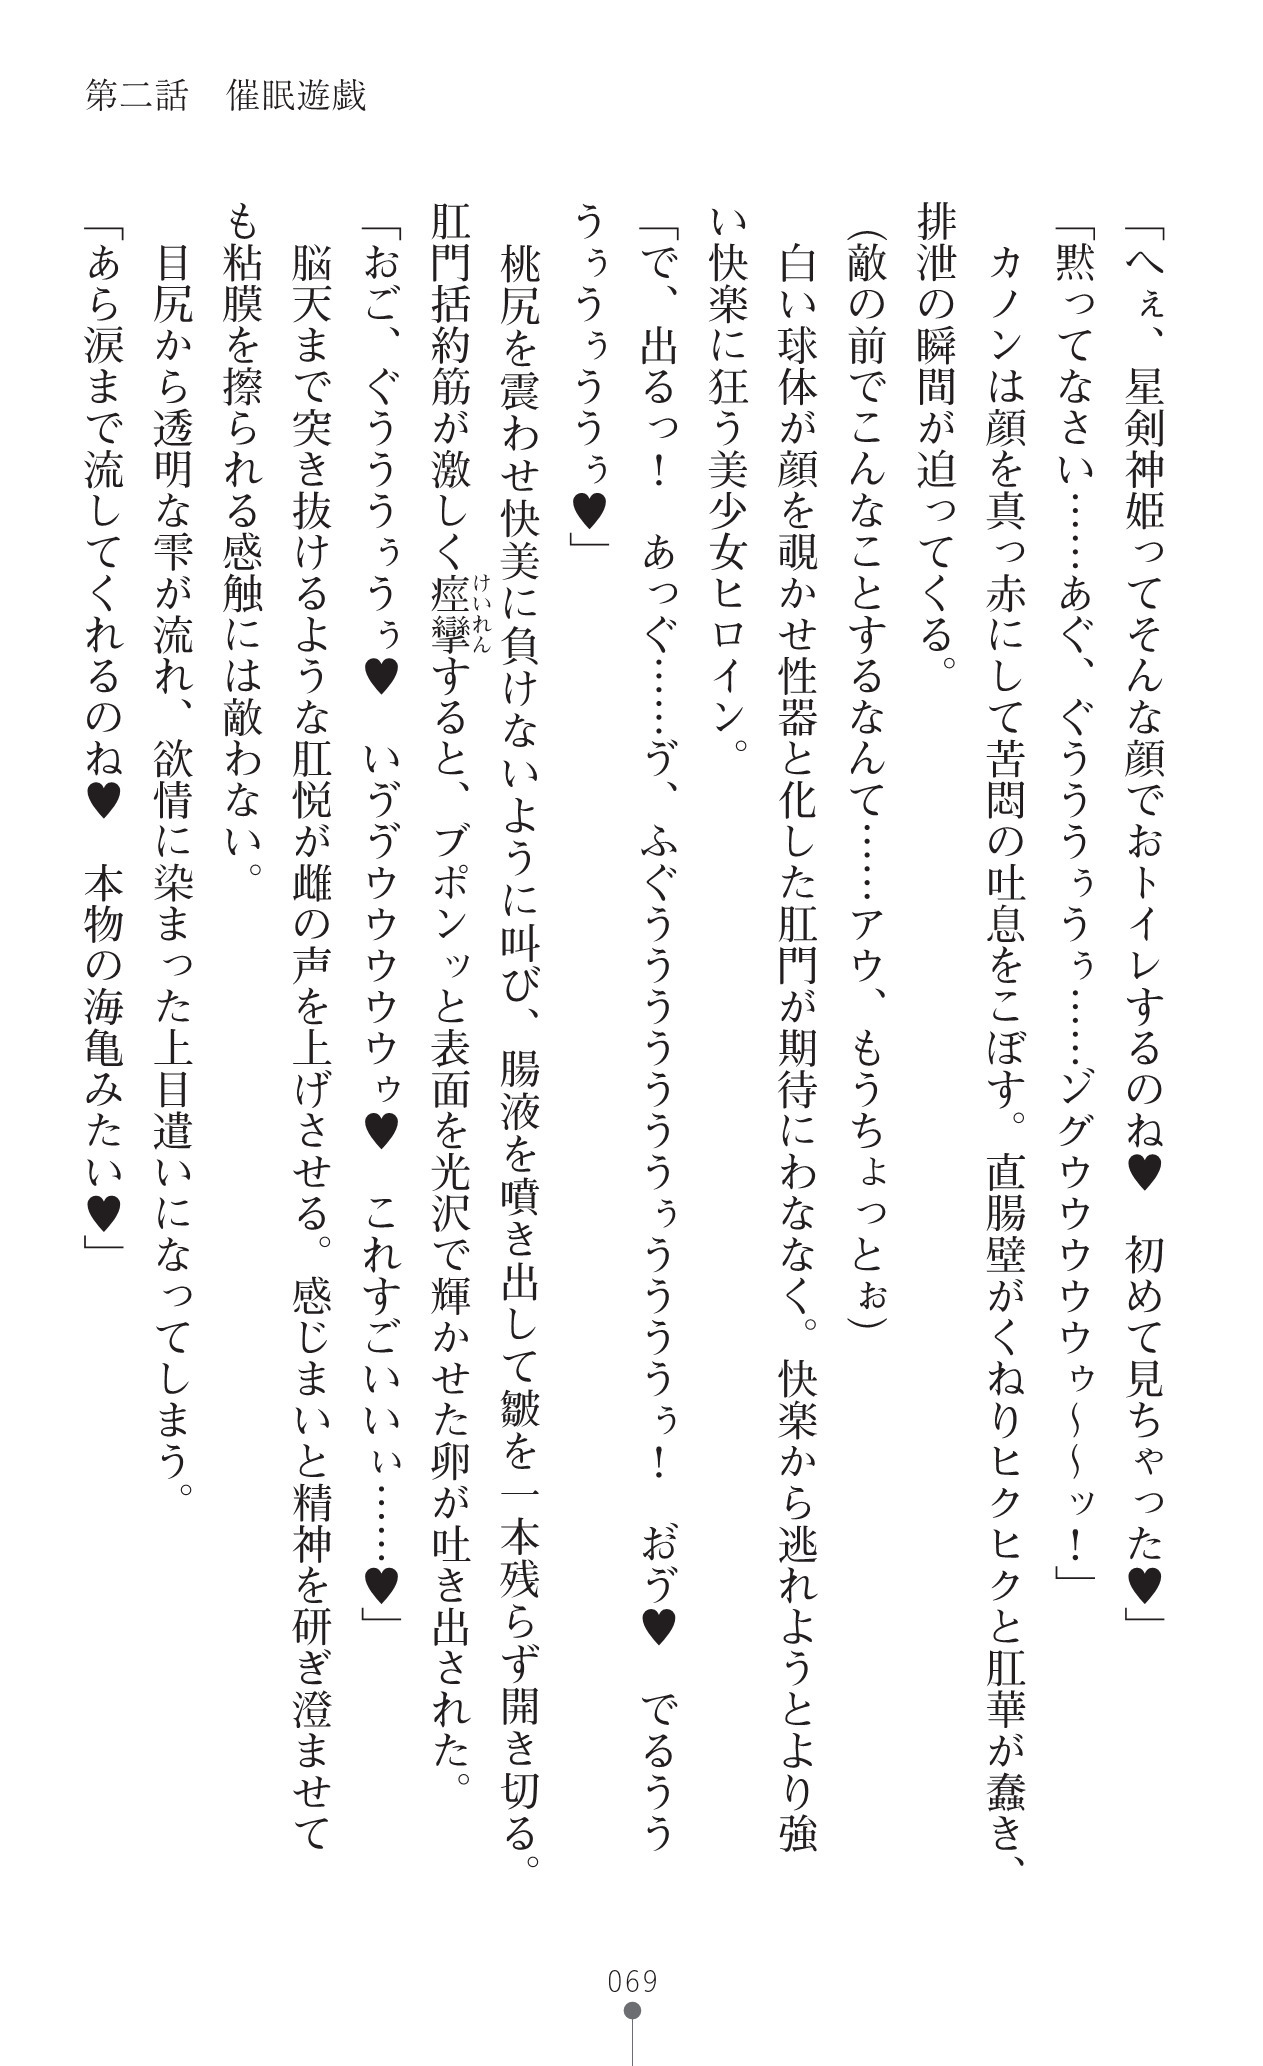 第二話　催眠遊戯
「へぇ、星剣神姫ってそんな顔でおトイレするのね♥　初めて見ちゃった♥」
「黙ってなさい……あぐ、ぐうううぅうぅ……ゾグウウウウウゥ～～ッ！」
カノンは顔を真っ赤にして苦悶の吐息をこぼす。直腸壁がくねりヒクヒクと肛華が蠢き、
排泄の瞬間が迫ってくる。
（敵の前でこんなことするなんて……アウ、もうちょっとぉ）
白い球体が顔を覗かせ性器と化した肛門が期待にわななく。快楽から逃れようとより強
い快楽に狂う美少女ヒロイン。
「で、出るっ！　あっぐ……ゔ、ふぐうううううううぅううううぅ！　お゙ゔ♥　でるうう
うぅうぅううぅ♥」
桃尻を震わせ快美に負けないように叫び、腸液を噴き出して皺を一本残らず開き切る。
肛門括約筋が激しく痙攣すると、ブポンッと表面を光沢で輝かせた卵が吐き出された。
けいれん
「おご、ぐうううぅうぅ♥　いゔゔウウウウウゥ♥　これすごいいぃ……♥」
脳天まで突き抜けるような肛悦が雌の声を上げさせる。感じまいと精神を研ぎ澄ませて
も粘膜を擦られる感触には敵わない。
目尻から透明な雫が流れ、欲情に染まった上目遣いになってしまう。
「あら涙まで流してくれるのね♥　本物の海亀みたい♥」
069